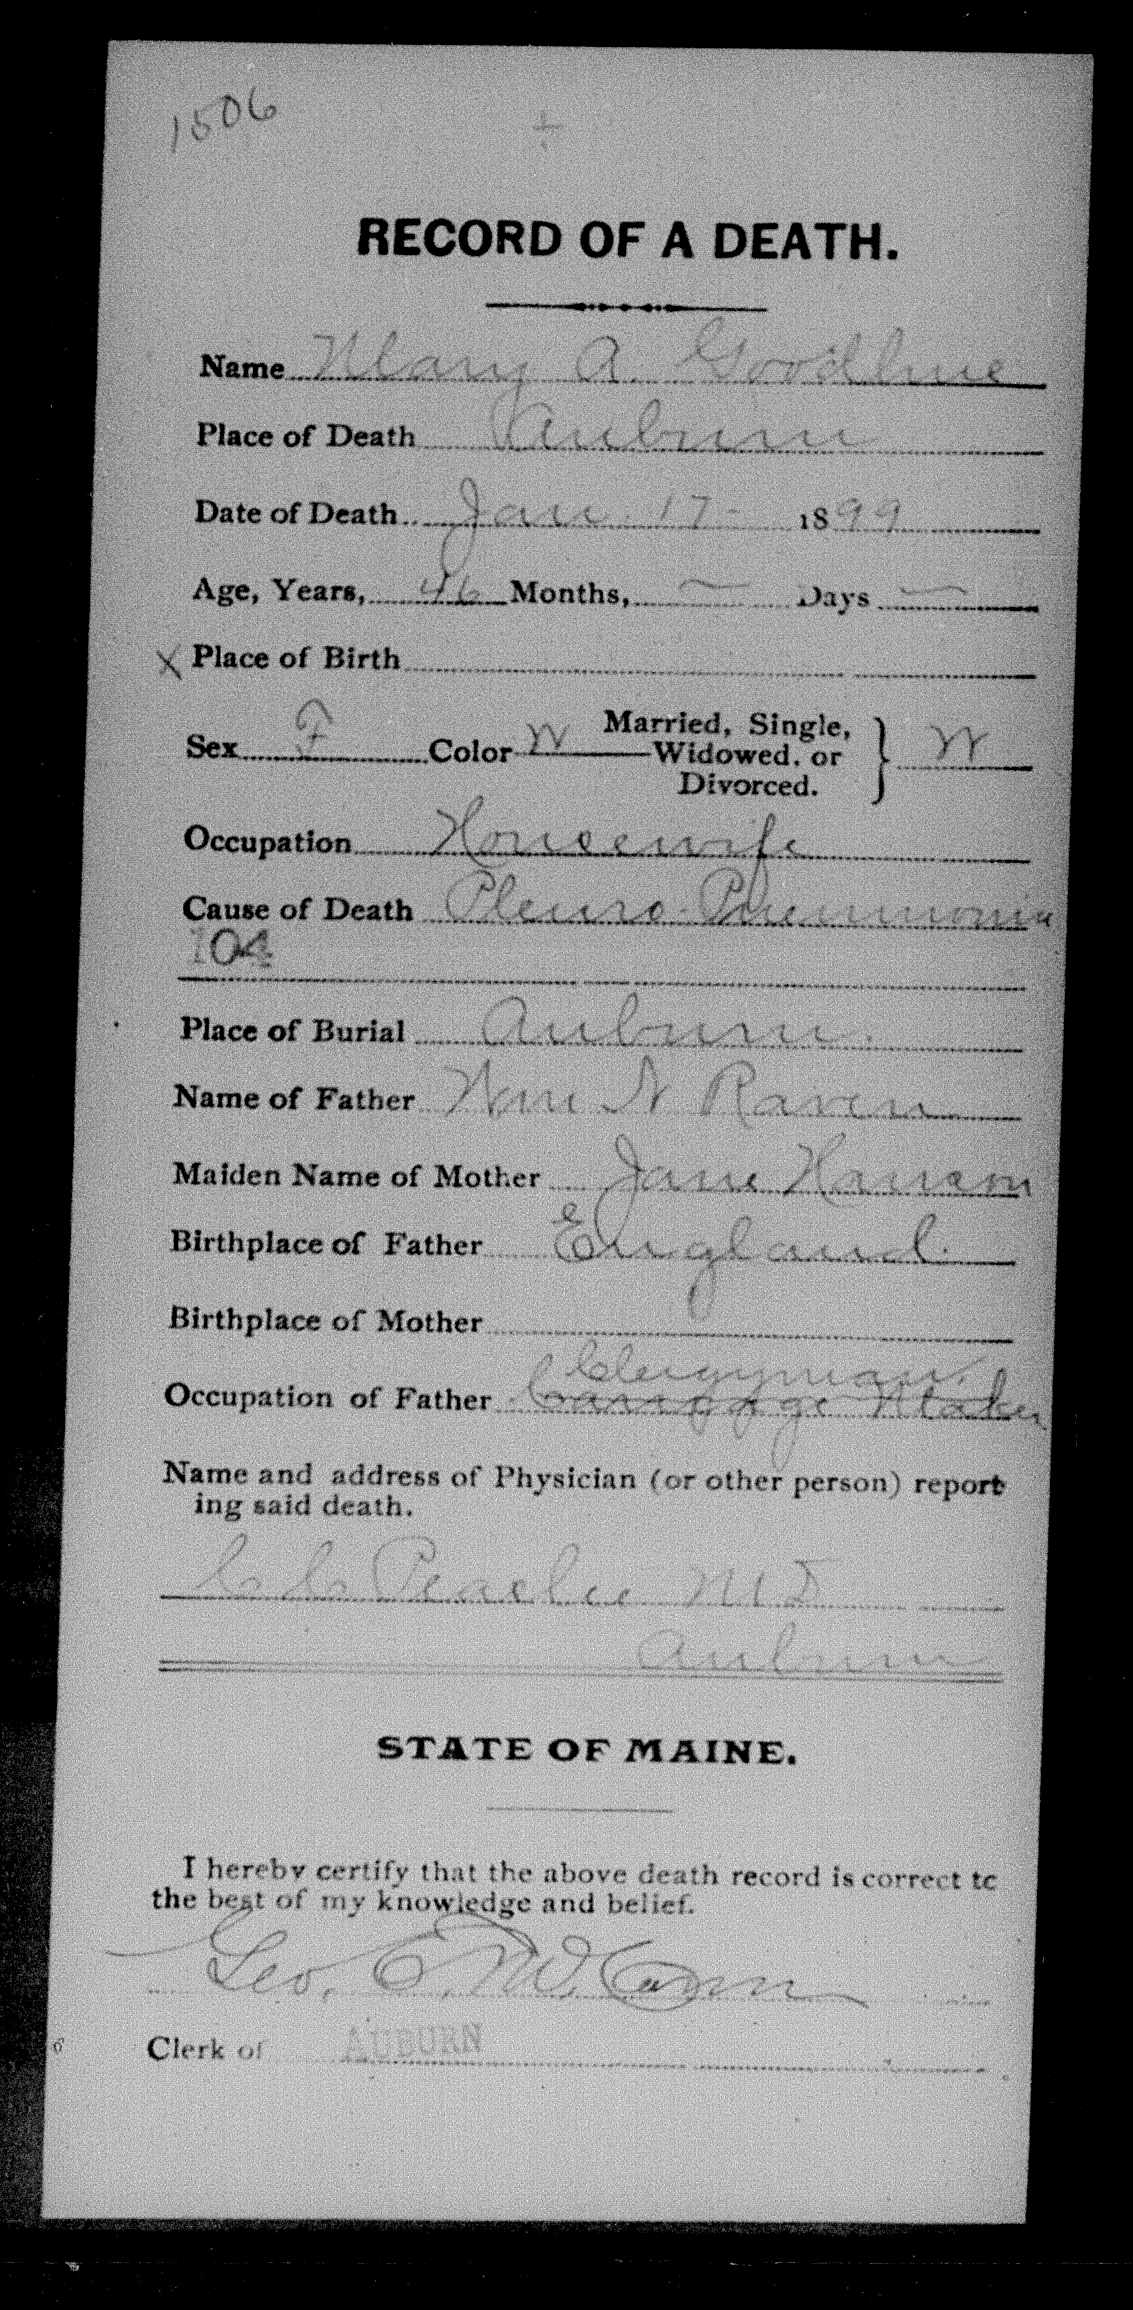 1506
RECORD OF A DEATH.
Name Mary A. Goodhue
Place of Death Auburn
Date of Death Jan 17 - 1899
Age, Years, 46 Months, — Days —
X Place of Birth
Sex F Color W Married, Single, Widowed, or Divorced. } W
Occupation Housewife
Cause of Death Pleuro-Pneumonia
104
Place of Burial Auburn.
Name of Father Wm N Raven
Maiden Name of Mother Jane Hanson
Birthplace of Father England.
Birthplace of Mother
Clergyman.
Occupation of Father Carriage Maker
Name and address of Physician (or other person) report
ing said death.
C C Peaslee M D
Auburn
STATE OF MAINE.
I hereby certify that the above death record is correct to
the best of my knowledge and belief.
Geo. E. McCann
Clerk of AUBURN